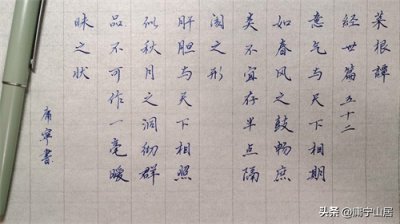 菜根譚
经世篇五十二
意气与天下相期
如春风之鼓畅庶
类不宜存半点隔
阂之形
肝胆与天下相照
似秋月之洞彻群
品不可作一毫暧
昧之状
寧書
头条 @宁山居